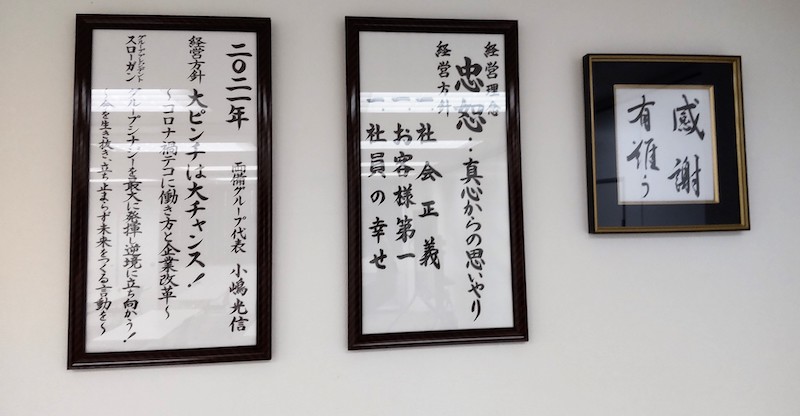 二〇二一年 両備グループ代表 小嶋光信
経営方針 大ピンチは大チャンス!
~コロナ禍テコに働き方と企業改革~
スローガン グループシナジーを最大に発揮し逆境に立ち向かう!
を生き抜き、立ち止まらず未来をつくる言動を~
経営理念
忠恕‥真心からの思いやり
経営方針
一、社会正義
一、お客様第一
一、社員の幸せ
感謝
有難う